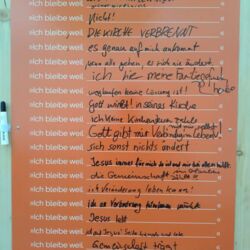 »Ich bleibe weil
»Ich bleibe weil Nicht!
»Ich bleibe weil DIE KIRCHE VERBRENNT
»Ich bleibe weil es genau auf mich ankommt
»Ich bleibe weil wenn alle gehen, es sich nie ändert!
»Ich bleibe weil ich sie meine
»Ich bleibe weil weglaufen keine Lösung ist! habe
»Ich bleibe weil Gott wirkt! in seiner Kirche
»Ich bleibe weil ich keine Kirchensteuer zahle
»Ich bleibe weil Gott gibt mir Verbindung
»Ich bleibe weil sich sonst nichts ändert
»Ich bleibe weil Jesus immer für mich da ist und mir bei allem hilft.
»Ich bleibe weil die Gemeinschaft
»Ich bleibe weil ich Veränderung leben kann!
»Ich bleibe weil ich es Verbindung
»Ich bleibe weil Jesus lebt
»Ich bleibe weil auf Jesus
»Ich bleibe weil Gemeinschaft trägt